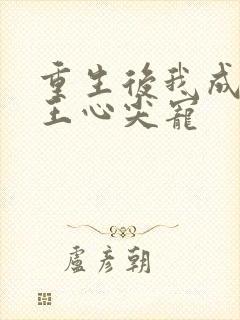 重生後我成
王心尖寵
盧彥朝